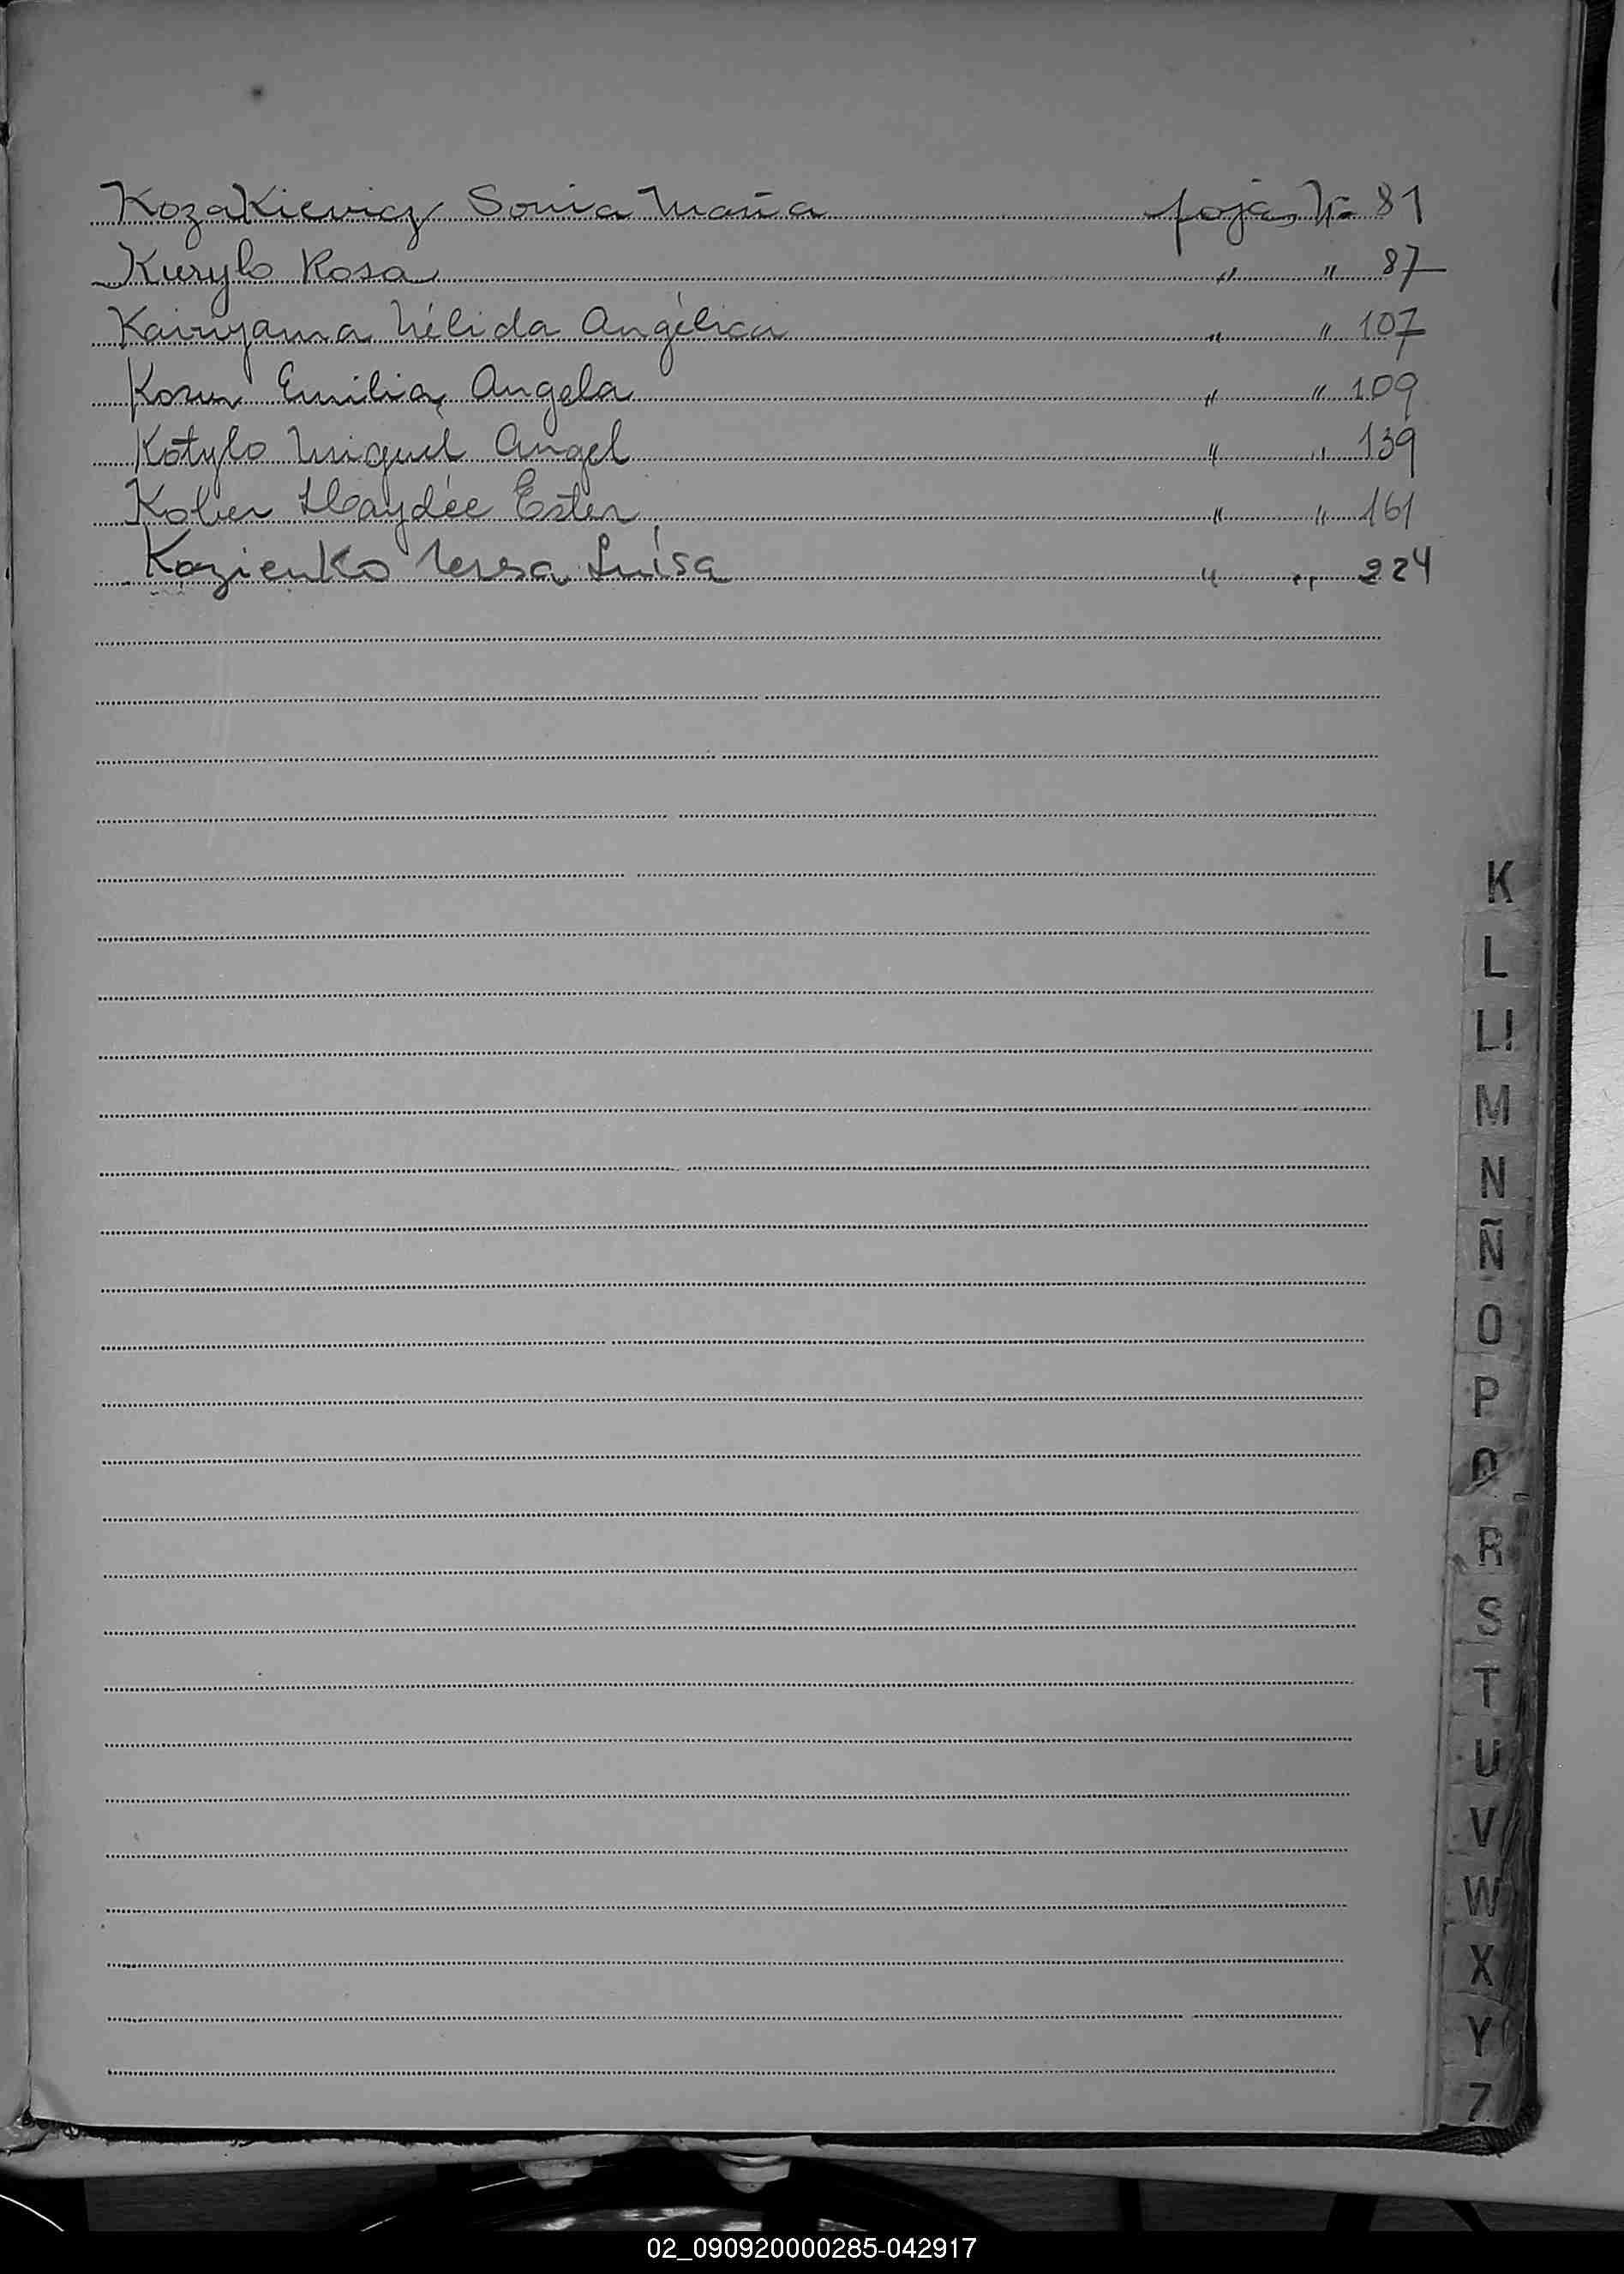 Kozakievicz Sonia María foja Nº 81
Kurylo Rosa " " 87
Kairiyama Nélida Angélica " " 107
Emilia Angela " " 109
Kotylo Miguel Angel " " 139
Kober Haydée Ester " " 161
Kozienko Teresa Luisa " " 224
K
L
Ll
M
N
Ñ
O
P
Q
R
S
T
U
V
W
X
Y
Z
02_090920000285-042917